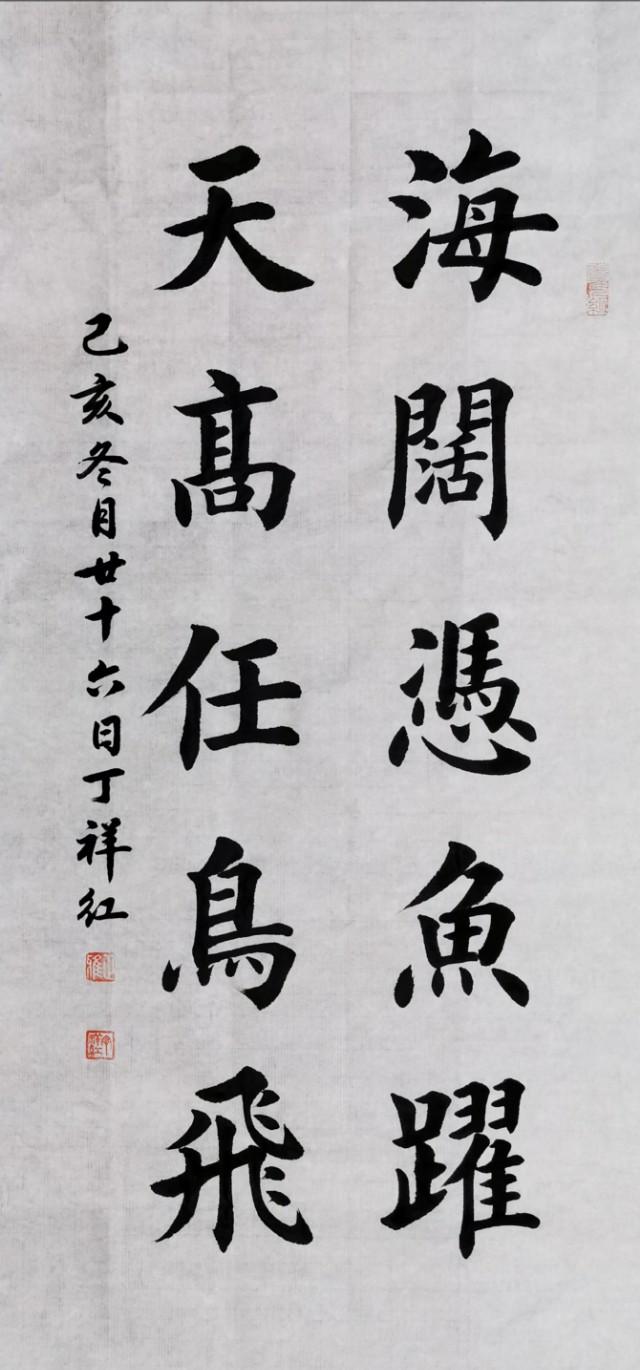 海闊憑魚躍
天高任鳥飛
己亥冬月廿十六日丁祥红